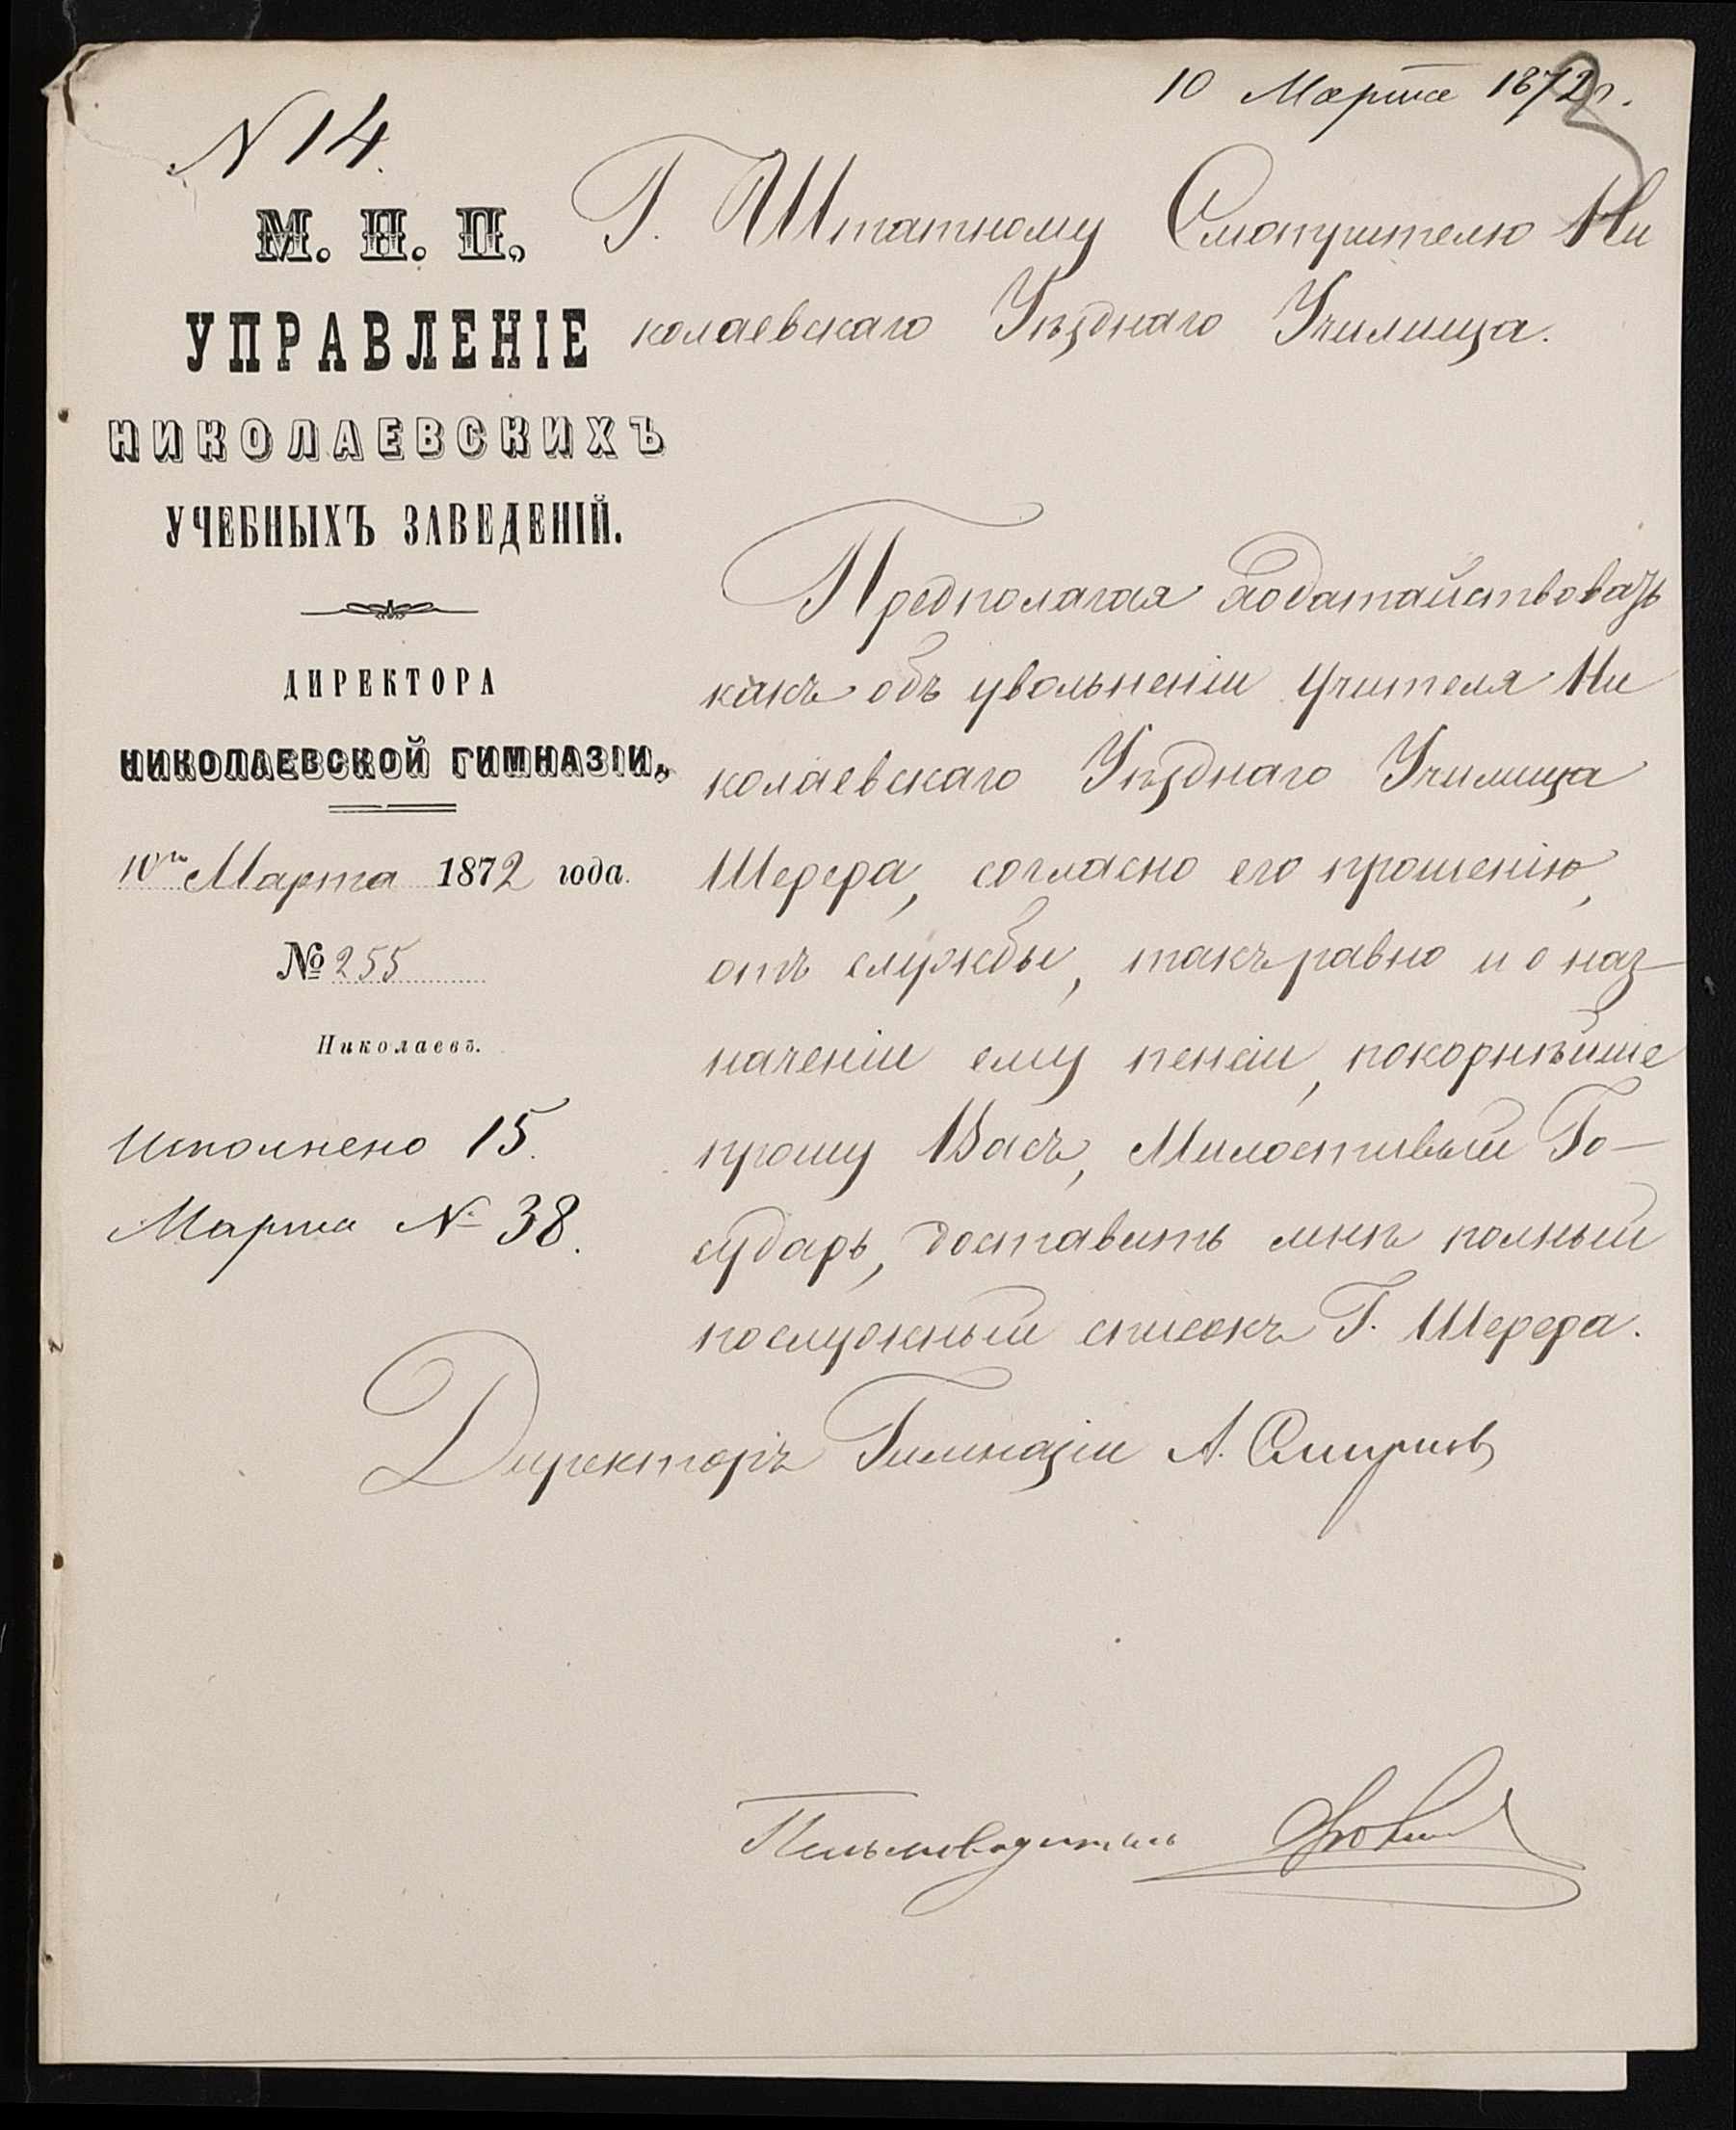 10 Марта 1872 г.
2
N 14.
М. Н. П.
УПРАВЛЕНІЕ
НИКОЛАЕВСКИХЪ
УЧЕБНЫХЪ ЗАВЕДЕНІЙ.
ДИРЕКТОРА
НИКОЛАЕВСКОЙ ГИМНАЗІИ,
10го Марта 1872 года.
№ 255
Николаевъ.
Исполнено 15.
Марта № 38.
Г. Штатному Смотрителю Ни
колаевскаго Уѣзднаго Училища.
Предполагая ходатайствовать
какъ объ увольненіи учителя Ни
колаевскаго Уѣзднаго Училища
Шерера, согласно его прошенію,
отъ службы, такъ равно и о наз-
наченіи ему пенсіи, покорнѣйше
прошу Васъ, Милостивый Го-
сударь, доставить мнѣ полный
послужный списокъ Г. Шерера.
Директоръ Гимназіи А. Смирнов
Письмоводитель